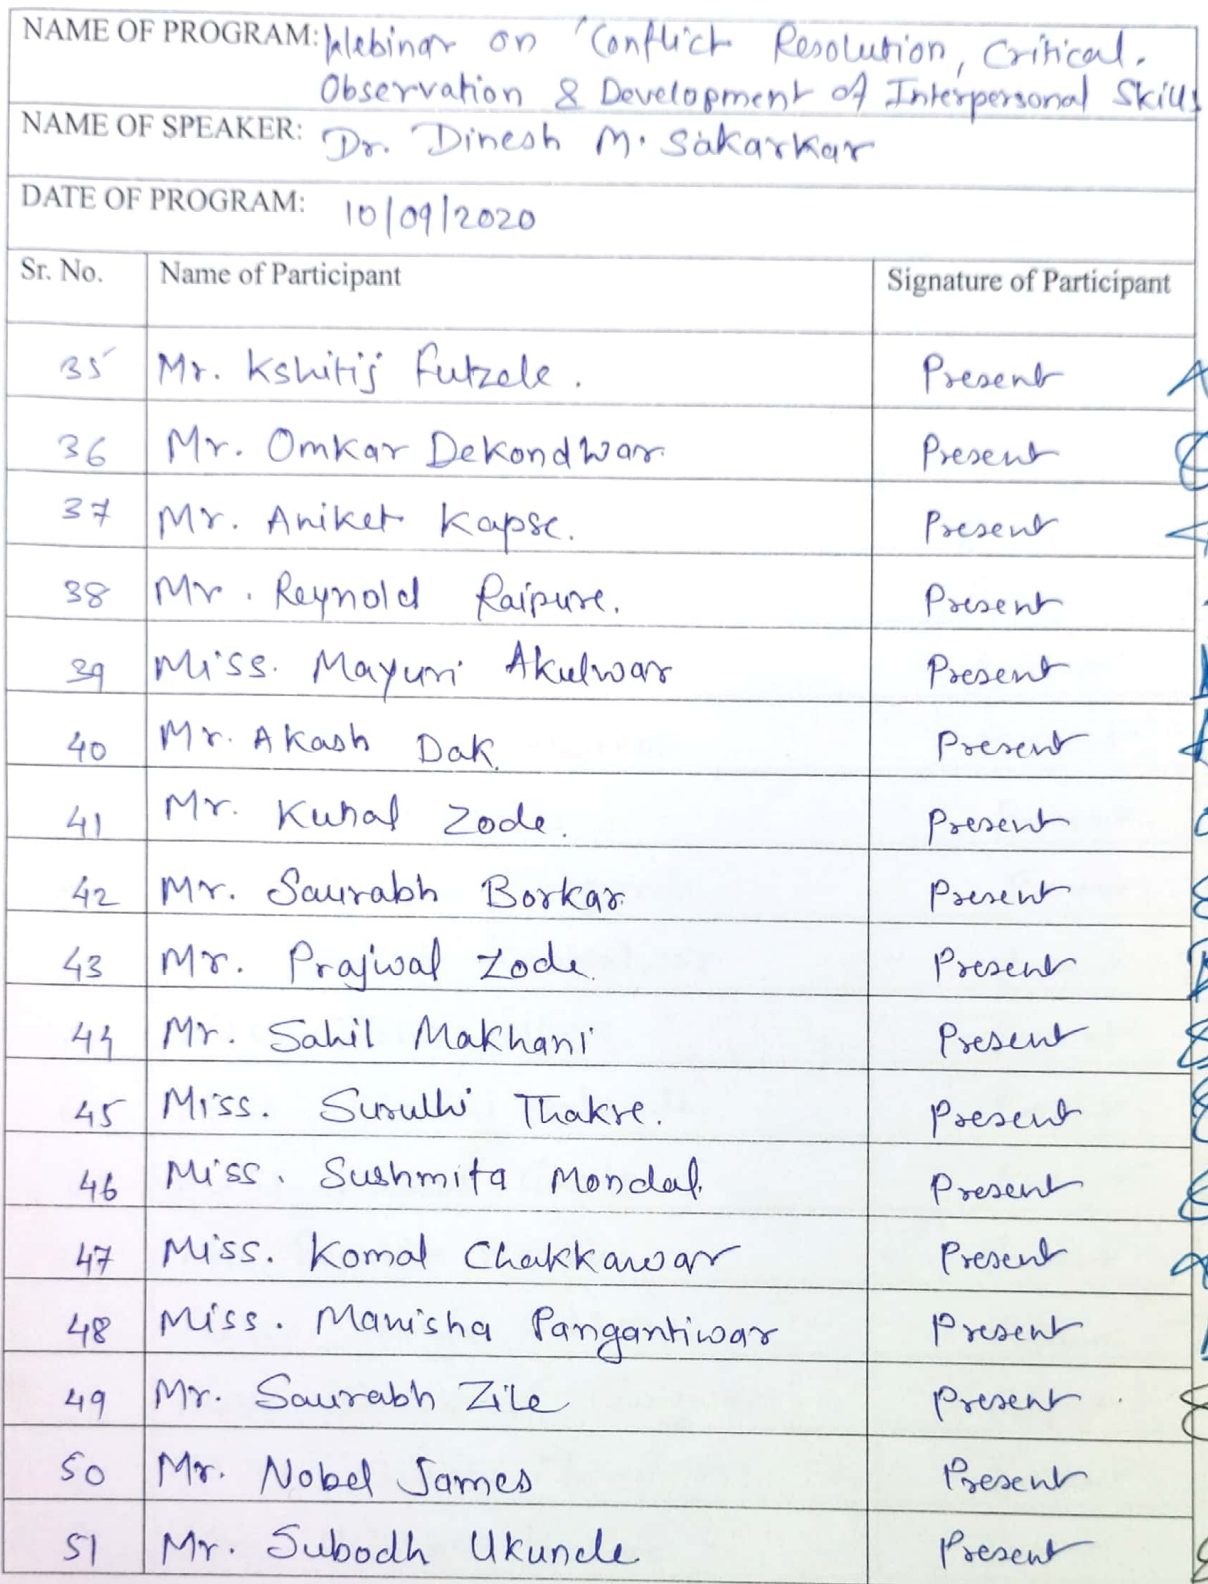 NAME OF PROGRAM: Webinar on "Conflict Resolution, Critical.
Observation & Development of Interpersonal Skills
NAME OF SPEAKER: Dr. Dinesh M. Sakarkar
DATE OF PROGRAM: 10/09/2020
Sr. No. Name of Participant Signature of Participant
35 Mr. Kshitij Futzele. Present
36 Mr. Omkar Dekondwar Present
37 Mr. Aniket Kapse. Present
38 Mr. Reynold Raipure. Present
39 Miss. Mayuri Akulwar Present
40 Mr. Akash Dak. Present
41 Mr. Kunal Zode. Present
42 Mr. Saurabh Borkar Present
43 Mr. Prajwal Zode. Present
44 Mr. Sahil Makhani Present
45 Miss. Thakre. Present
46 Miss. Sushmita Mondal. Present
47 Miss. Komal Chakkawar Present
48 Miss. Manisha Pangantiwar Present
49 Mr. Saurabh Zile Present
50 Mr. Nobel James Present
51 Mr. Subodh Ukunde Present